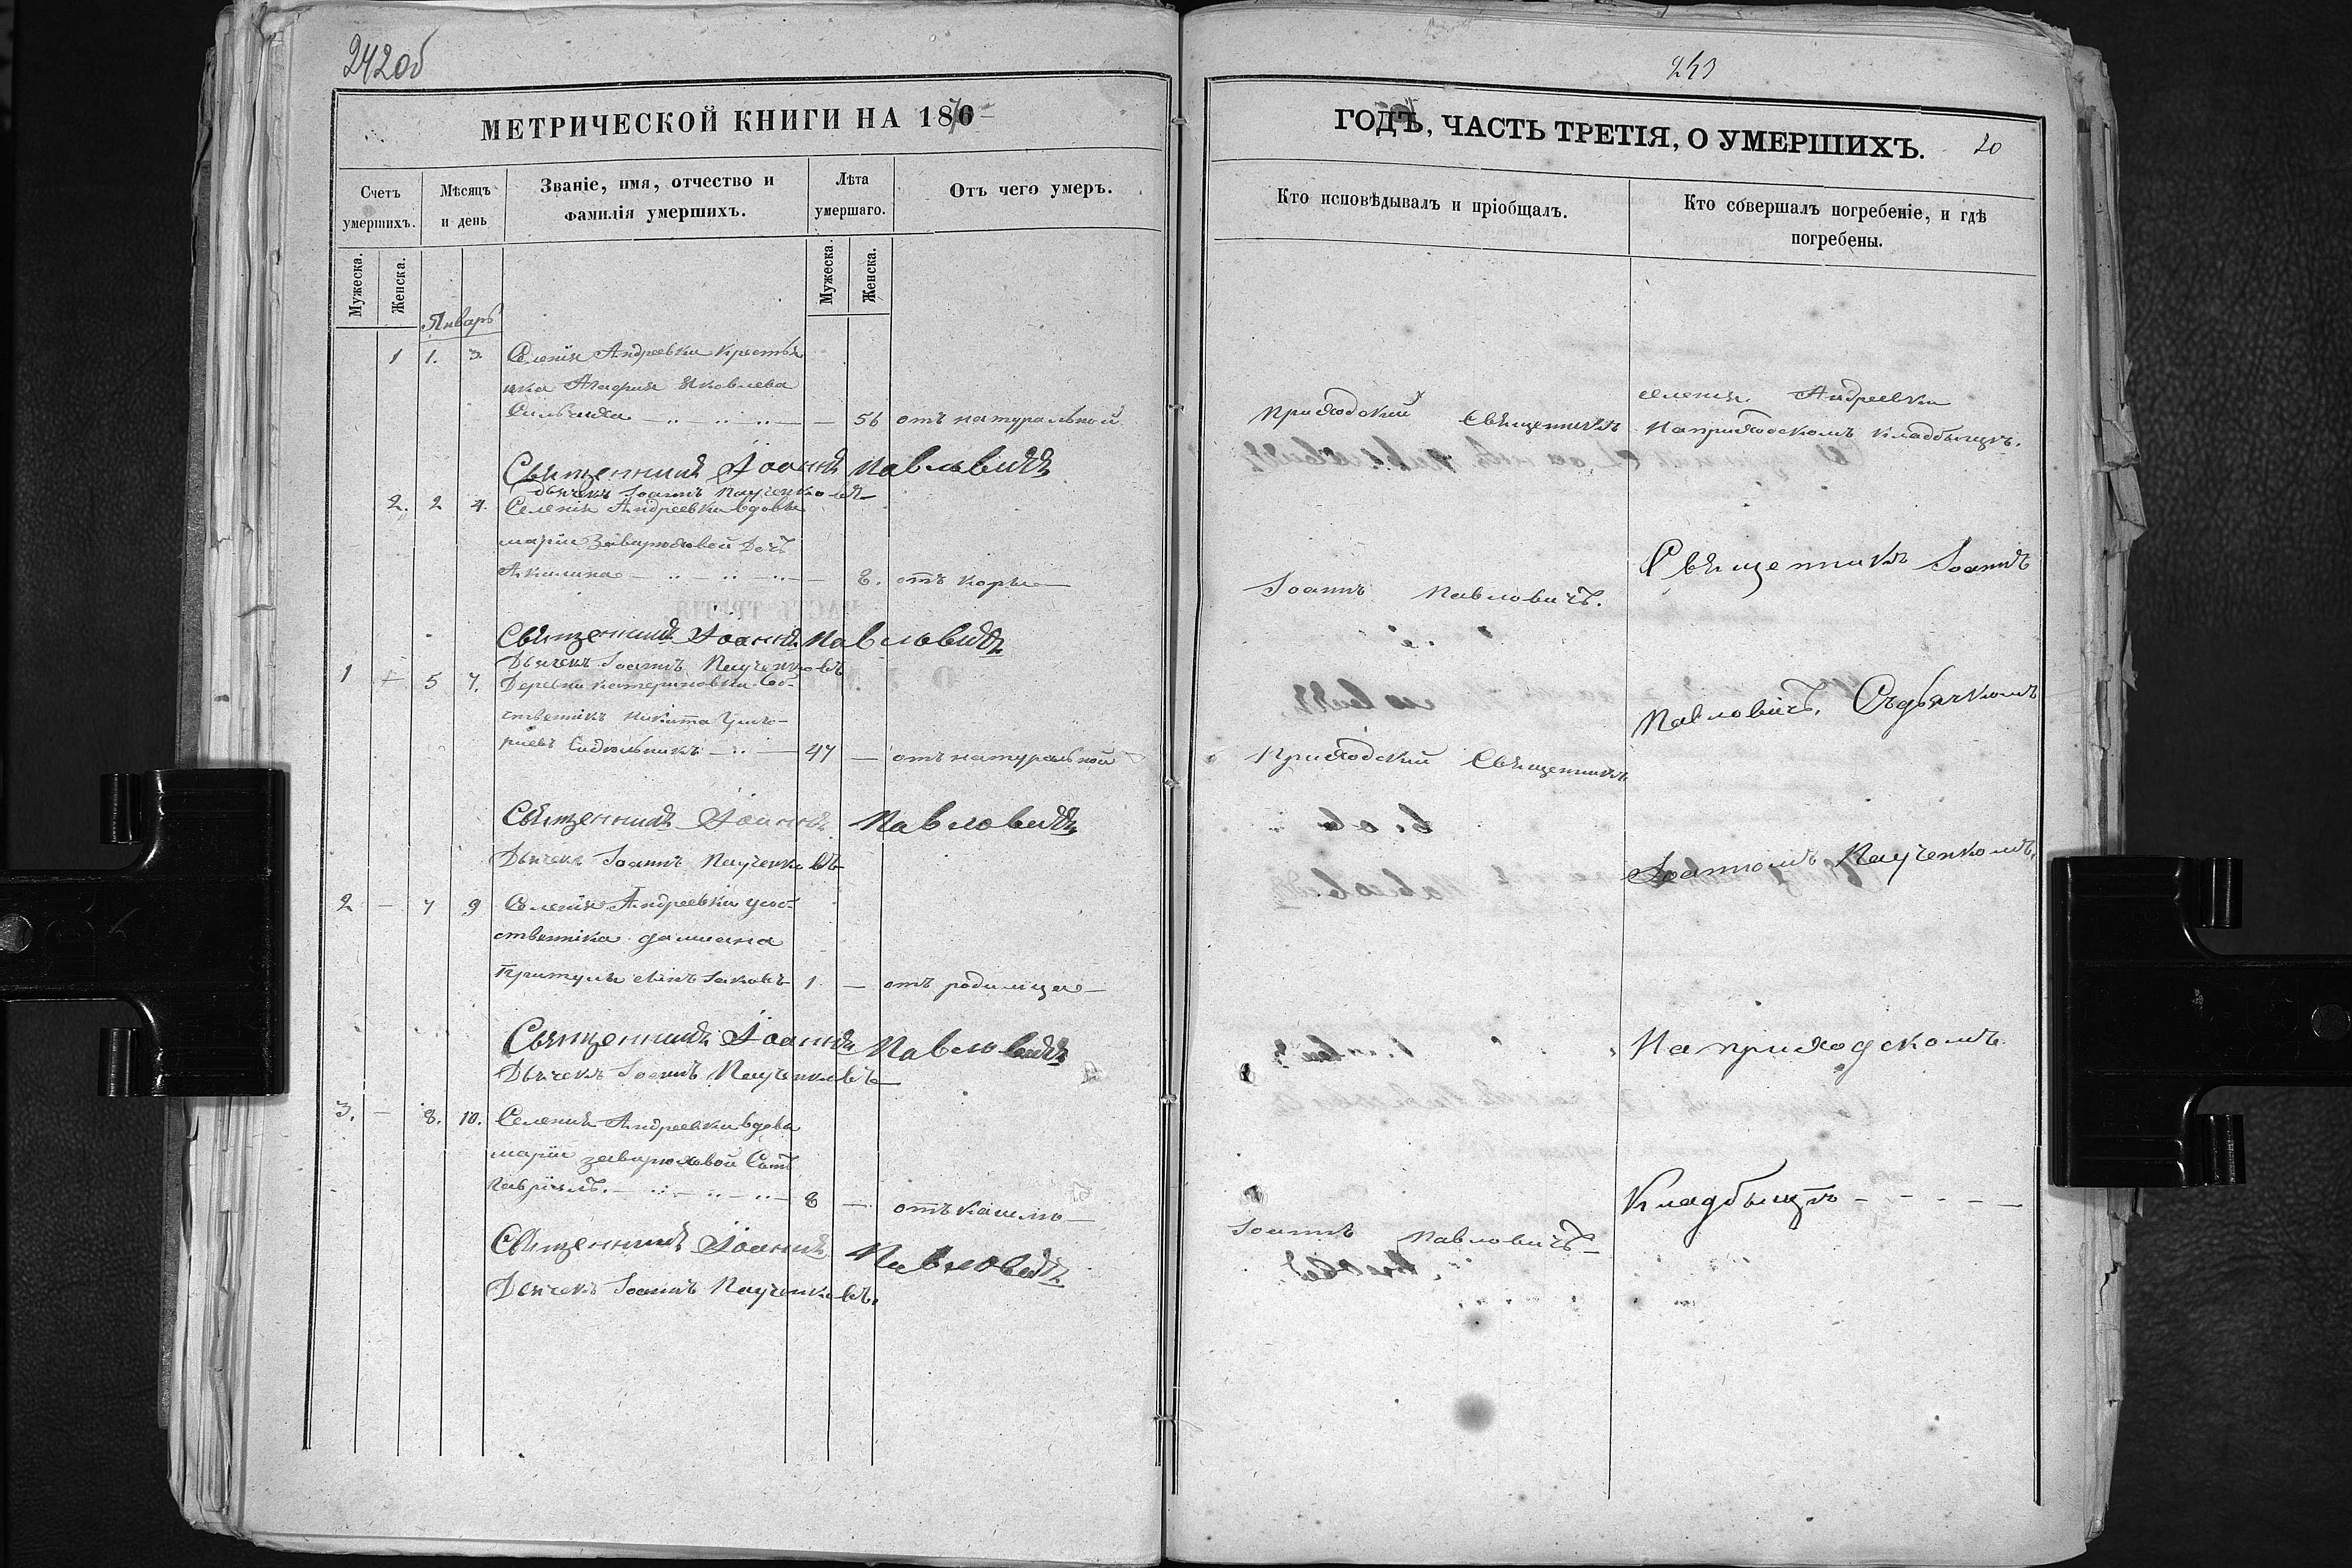 242об
МЕТРИЧЕСКОЙ КНИГИ НА 1870
Счетъ умершихъ.
Мѣсяцъ и день
Званіе, имя, отчество и фамилія умершихъ.
Лѣта умершаго.
Отъ чего умеръ.
Мужеска.
Женска.
Мужеска.
Женска.
Январь
1 1. 3. Селенія Андреевки крестья
нка Агафия Яковлева
— 56 отъ натуральной
Священникъ Іоаннъ Павловичъ
Дьячекъ Іоаннъ Паученковъ
2. 2 4. Селенія Андреевки вдовы
маріи Заварюховой Дочь
Акилина — 8. отъ кори
Священникъ Іоаннъ Павловичъ
Дьячекъ Іоаннъ Паученковъ
1 — 5 7. Деревни катериновки Соб-
ственникъ Никита Григо-
риевъ — 47 — отъ натуральной
Священникъ Іоаннъ Павловичъ
Дьячекъ Іоаннъ Паученковъ
2 — 7 9 Селенія Андреевки у соб-
ственика дамиана
Притулы сынъ Іаковъ 1 — отъ родимца
Священникъ Іоаннъ Павловичъ
Дьячекъ Іоаннъ Паученковъ
3. — 8. 10. Селенія Андреевки вдовы
маріи заварюховой Сынъ
Гавріилъ. — 8 — отъ кашлю
Священникъ Іоаннъ Павловичъ
Дьячекъ Іоаннъ Паученковъ.
243
ГОДЪ, ЧАСТЬ ТРЕТІЯ, О УМЕРШИХЪ.
20
Кто исповѣдывалъ и пріобщалъ.
Кто совершалъ погребеніе, и гдѣ погребены.
Приходский Священникъ
Іоаннъ Павловичъ.
Приходский Священникъ
Іоаннъ Павловичъ
селенія Андреевки
На приходскомъ кладбыщѣ.
Священникъ Іоаннъ
Павловичъ, Съ дьячкомъ
Іоанномъ Паученкомъ,
На приходскомъ
Кладбыщѣ